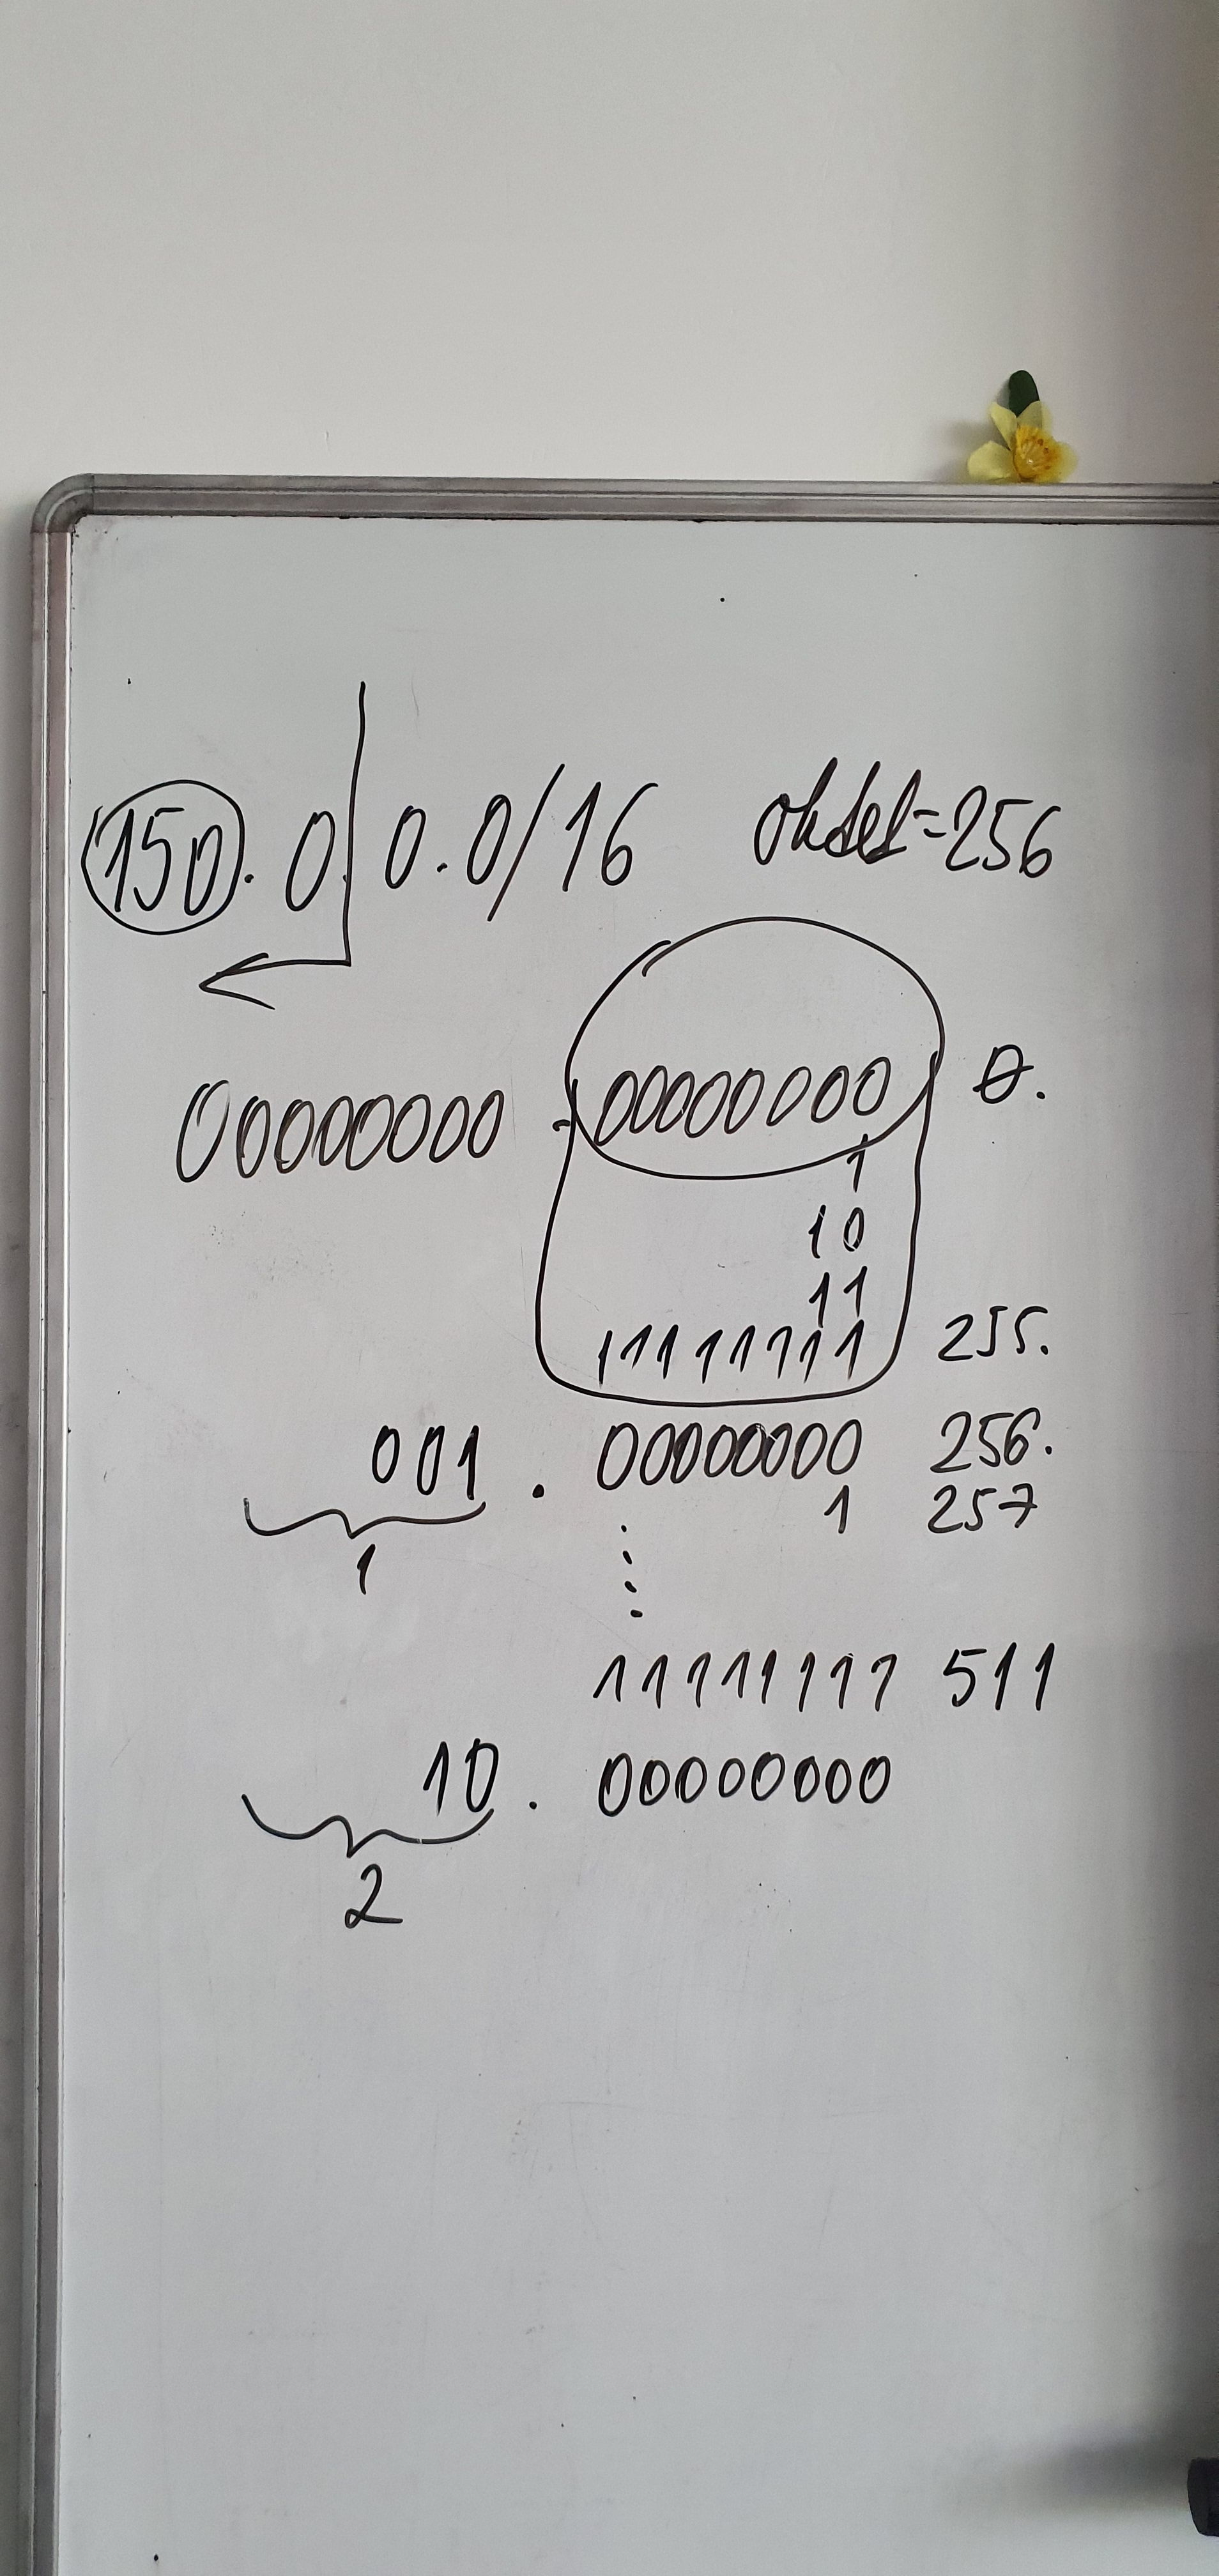 150.0.0.0/16 oktet=256
00000000 . 00000000 0.
1
10
11
11111111 255.
001 . 00000000 256.
1 257
1
11111111 511
10 . 00000000
2